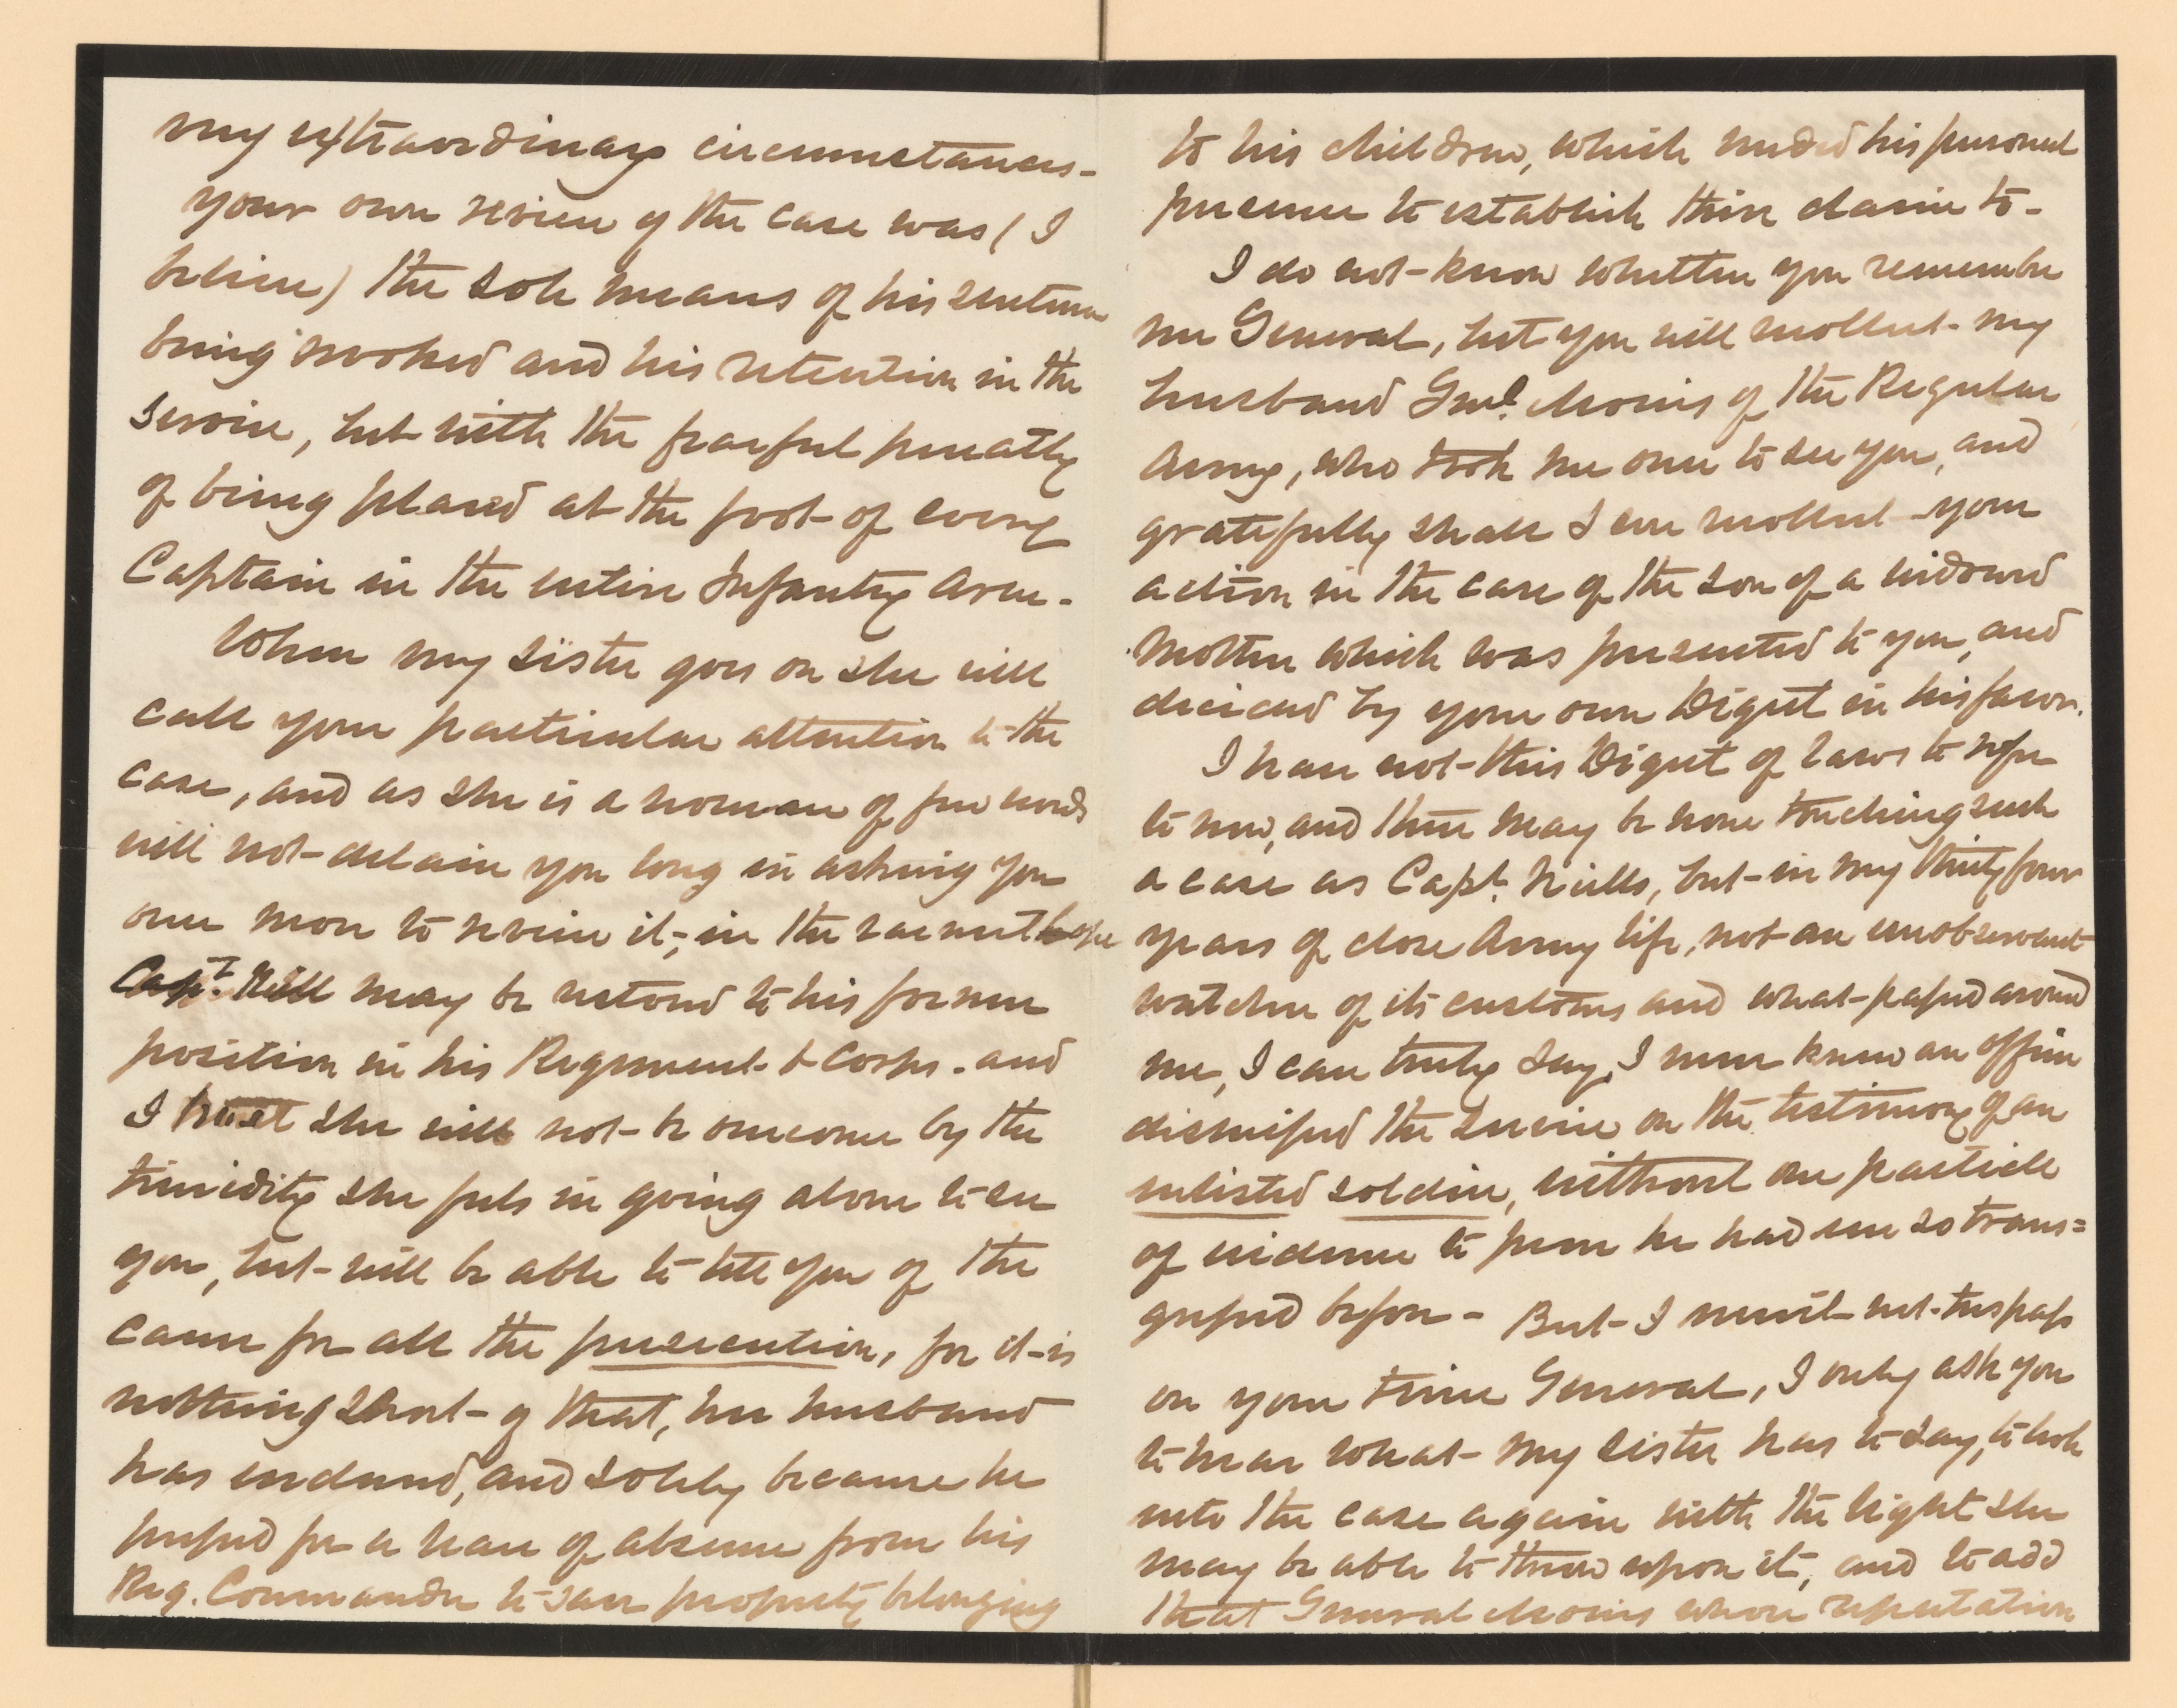 my extraordinary circumstances-
your own review of the case was (I
believe) the sole means of his sentence
being revoked and his retention in the
service, but with the fearful penalty
of being placed at the foot of every
Captain in the entire Infantry Arm.
When my sister goes on she will
call your particular attention to the
case, and as she is a woman of few words
will not detain you long in asking you
once more to review it, in the earnest hope
Capt. Neill may be restored to his former
position in his Regiment & Corps. and
I trust she will not be overcome by the
timidity she feels in going alone to see
you, but will be able to tell you of the
cause for all the persecution, for it is
nothing short of that, her husband
has endured, and solely because he
pressed for a leave of absence from his
Reg. Commander to save property belonging
to his children, which needed his personal
presence to establish their claim to-
I do not know whether you remember
me General, but you will recollect my
husband Genl. Morris of the Regular
Army, who took me once to see you, and
gratefully shall I ever recollect your
action in the case of the son of a widowed
Mother which was presented to you, and
decided by your own Digest in his favor.
I have not this Digest of Laws to refer
to now, and there may be none touching such
a case as Capt. Neills, but in my thirty four
years of close Army life, not an unobservant
watcher of its customs and what passed around
me, I can truly say, I never knew an officer
dismissed the service on the testimony of an
enlisted soldier, without one particle
of evidence to prove he had ever so trans=
gressed before - But I must not trespass
on your time General, I only ask you
to hear what my sister has to say, to look
into the case again with the light she
may be able to throw upon it, and to add
that General Morris whose reputation